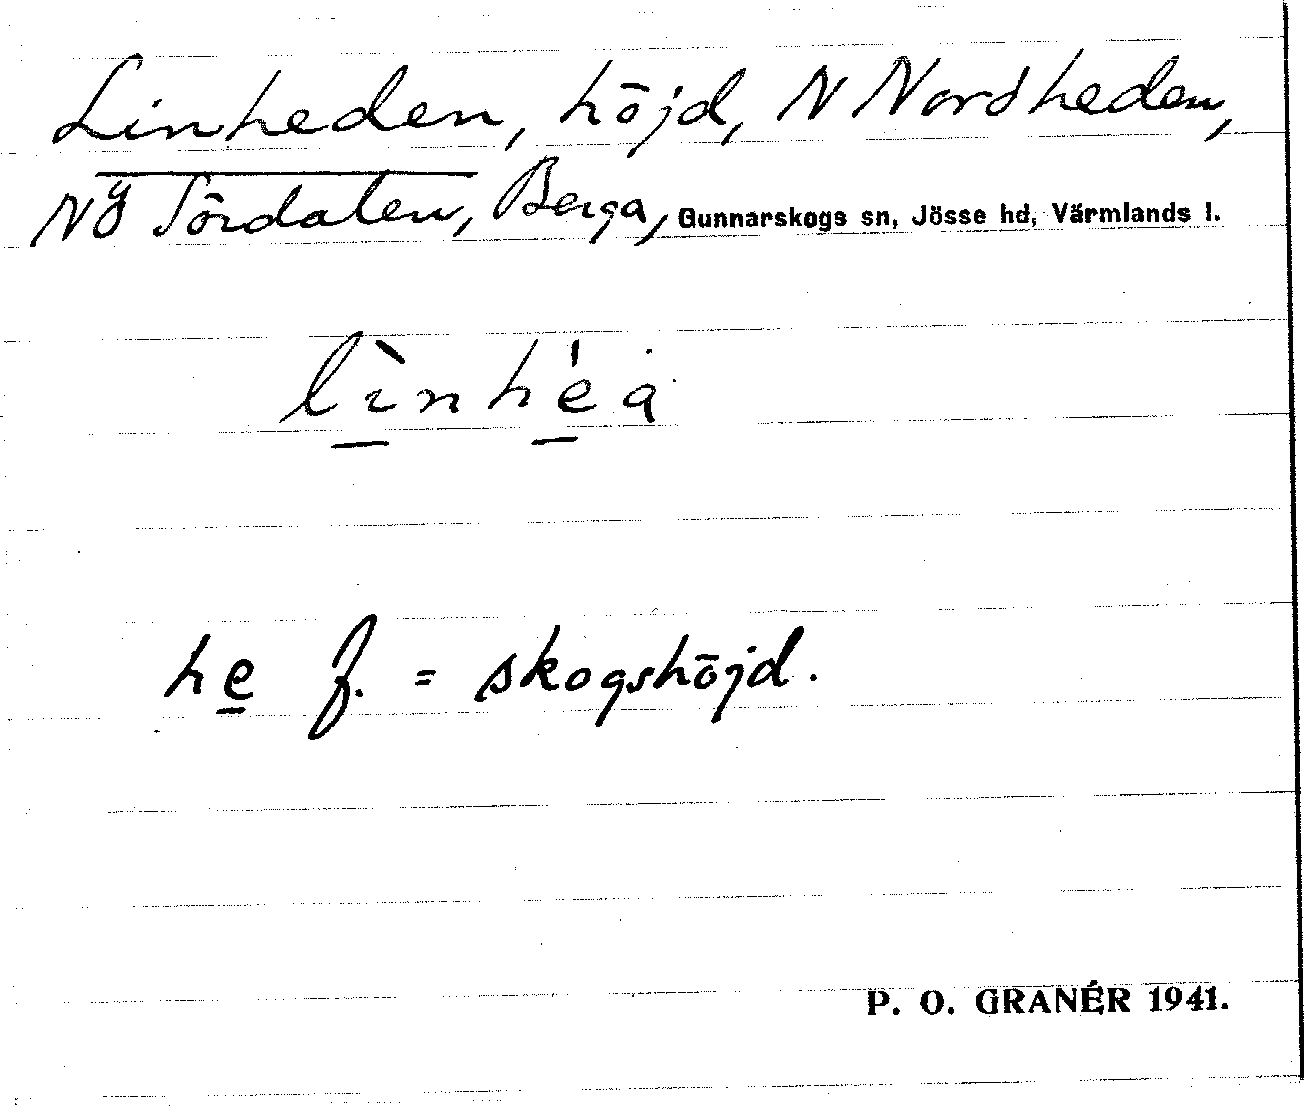 Linheden, höjd, N Nordheden,
NÖ Sördalen, Berga, Gunnarskogs sn, Jösse hd, Värmlands l.
lìnhéa
he f. = skogshöjd.
P. O. GRANÉR 1941.